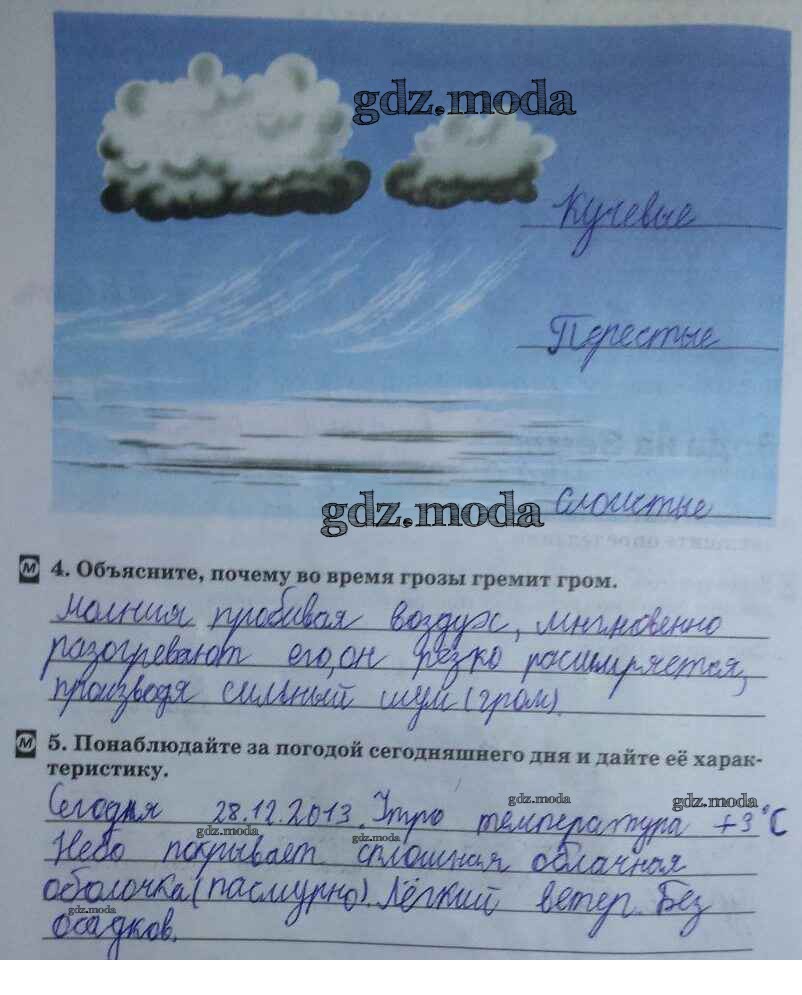 gdz.moda
Кучевые
Перестые
gdz.moda
Слоистые
М 4. Объясните, почему во время грозы гремит гром.
Молния пробивая воздух, мнгновенно
разогревают его, он резко расширяется,
производя сильный шум (гром).
М 5. Понаблюдайте за погодой сегодняшнего дня и дайте её харак-
теристику.
gdz.moda gdz.moda
Сегодня 28.12.2013. Утро температура +3°C
gdz.moda gdz.moda
Небо покрывает сплошная облачная
оболочка (пасмурно). Лёгкий ветер. Без
gdz.moda
осадков.